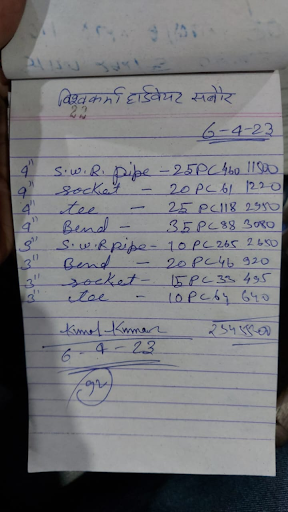 विश्वकर्मा हार्डवेयर सनौर
22
6-4-23
4" S.W.R. pipe - 25 PC 460 11500
4" socket - 20 PC 61 1220
4" tee - 25 PC 118 2950
4" Bend - 35 PC 88 3080
3" S.W.R pipe - 10 PC 265 2650
3" Bend - 20 PC 46 920
3" socket - 15 PC 33 495
3" tee - 10 PC 64 640
Kumar
6-4-23